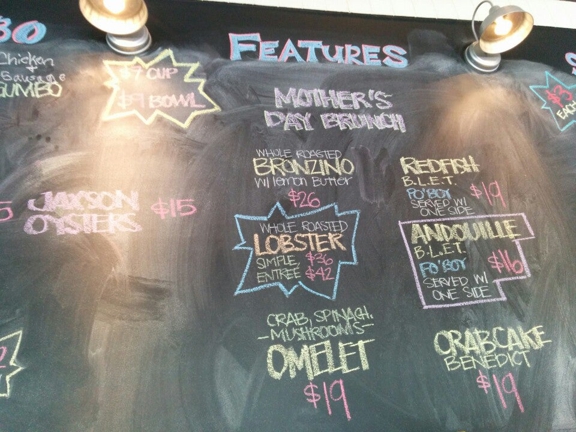 FEATURES
Chicken
+
Sausage
GUMBO
$7 CUP
$9 BOWL
JAXSON
OYSTERS $15
MOTHER'S
DAY BRUNCH
WHOLE ROASTED
BRONZINO
W/ lemon Butter
$26
WHOLE ROASTED
LOBSTER
SIMPLE $36
ENTREE $42
CRAB, SPINACH,
-MUSHROOMS-
OMELET
$19
REDFISH
B.L.E.T.
PO'BOY $19
SERVED W/
ONE SIDE
ANDOUILLE
B.L.E.T.
PO'BOY $16
SERVED W/
ONE SIDE
CRABCAKE
BENEDICT
$19
$3
EACH